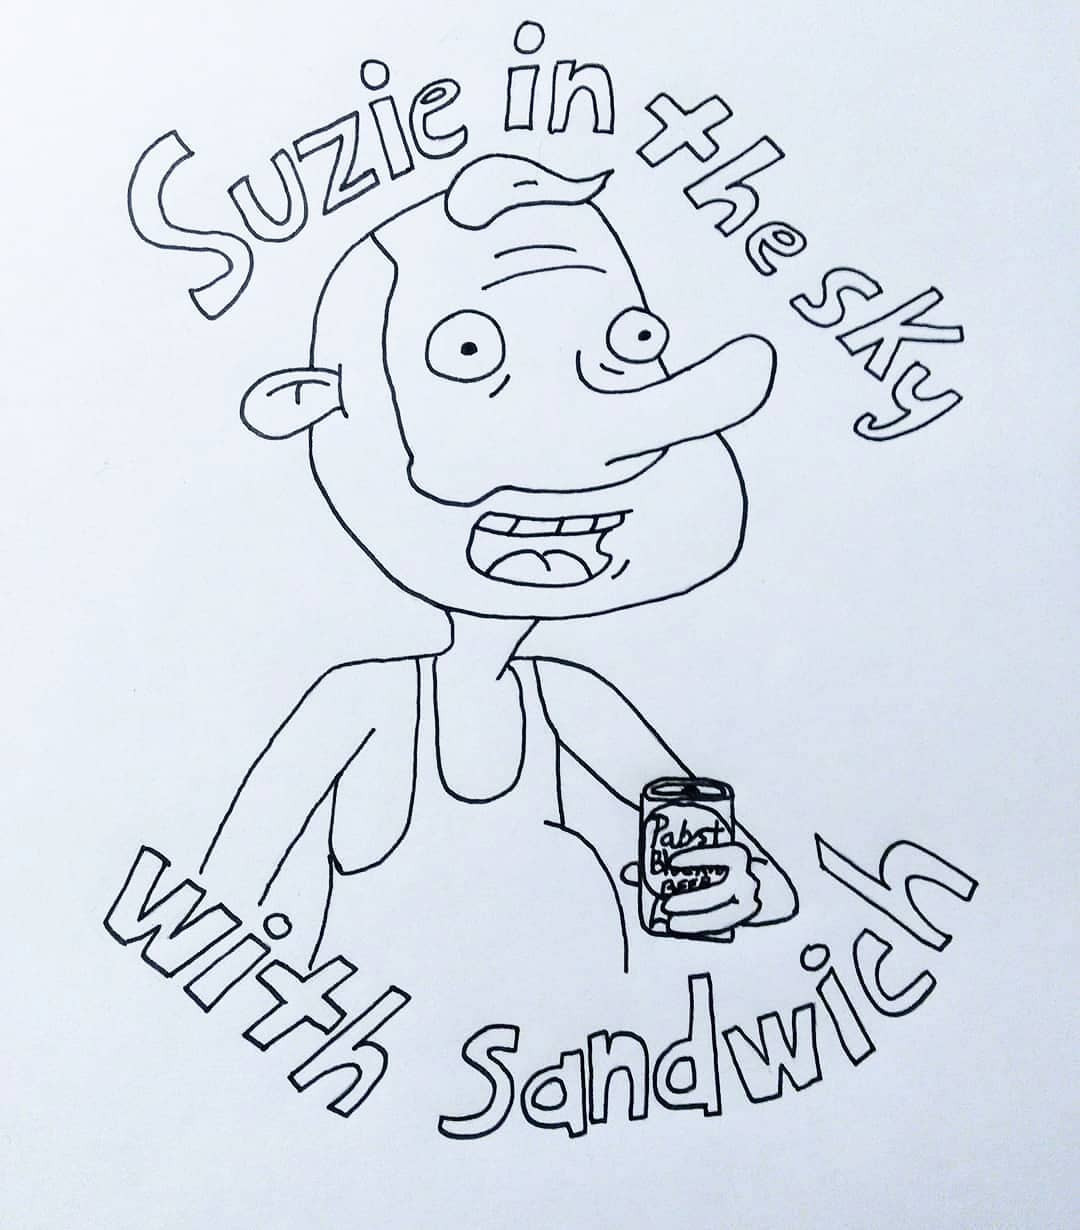 Suzie in the sky
Pabst
BEER
with Sandwich